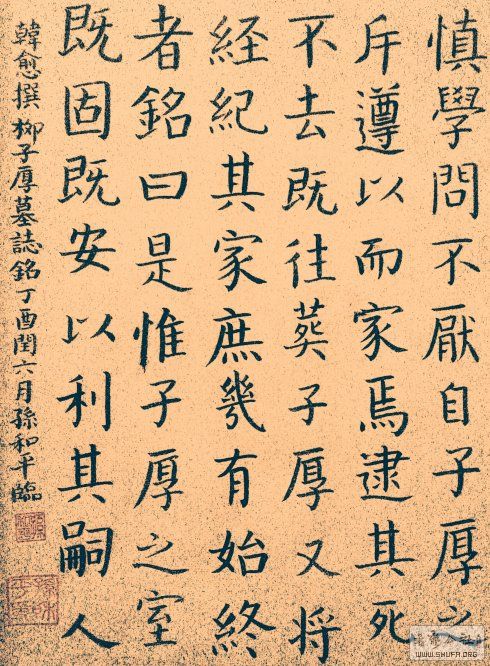 慎學問不厭自子厚之
斥遵以而家焉逮其死
不去既往葬子厚又將
經紀其家庶幾有始終
者銘曰是惟子厚之室
既固既安以利其嗣人
韓愈撰柳子厚墓誌銘丁酉閏六月孫和平臨
WWW.SHUFA.ORG